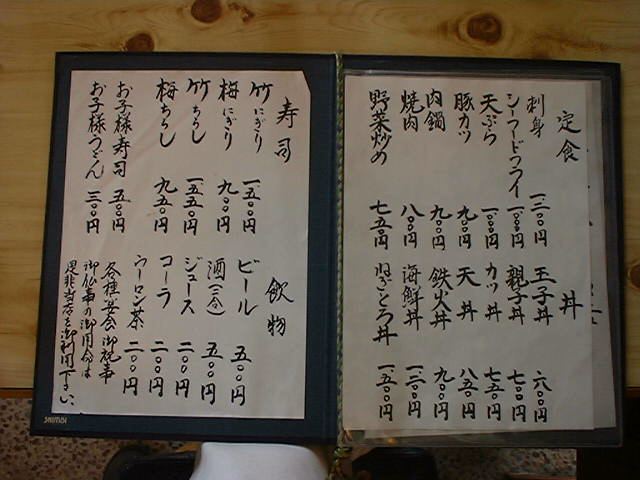 定食
刺身 一、二〇〇円
シーフードフライ 一、〇〇〇円
天ぷら 一、〇〇〇円
豚カツ 九〇〇円
肉鍋 九〇〇円
焼肉 八〇〇円
野菜炒め 七五〇円
丼
玉子丼 六〇〇円
親子丼 七〇〇円
カツ丼 七五〇円
天丼 八五〇円
鉄火丼 九〇〇円
海鮮丼 一、二〇〇円
ねぎとろ丼 一、五〇〇円
寿司
竹にぎり 一、五〇〇円
梅にぎり 九〇〇円
竹ちらし 一、五五〇円
梅ちらし 九五〇円
お子様寿司 五〇〇円
お子様うどん 三〇〇円
飲物
ビール 五〇〇円
酒(二合) 五〇〇円
ジュース 二〇〇円
コーラ 二〇〇円
ウーロン茶 二〇〇円
各種宴会御祝事
御仏事の御用命は
是非当店を御利用下さい、
SHIMBI